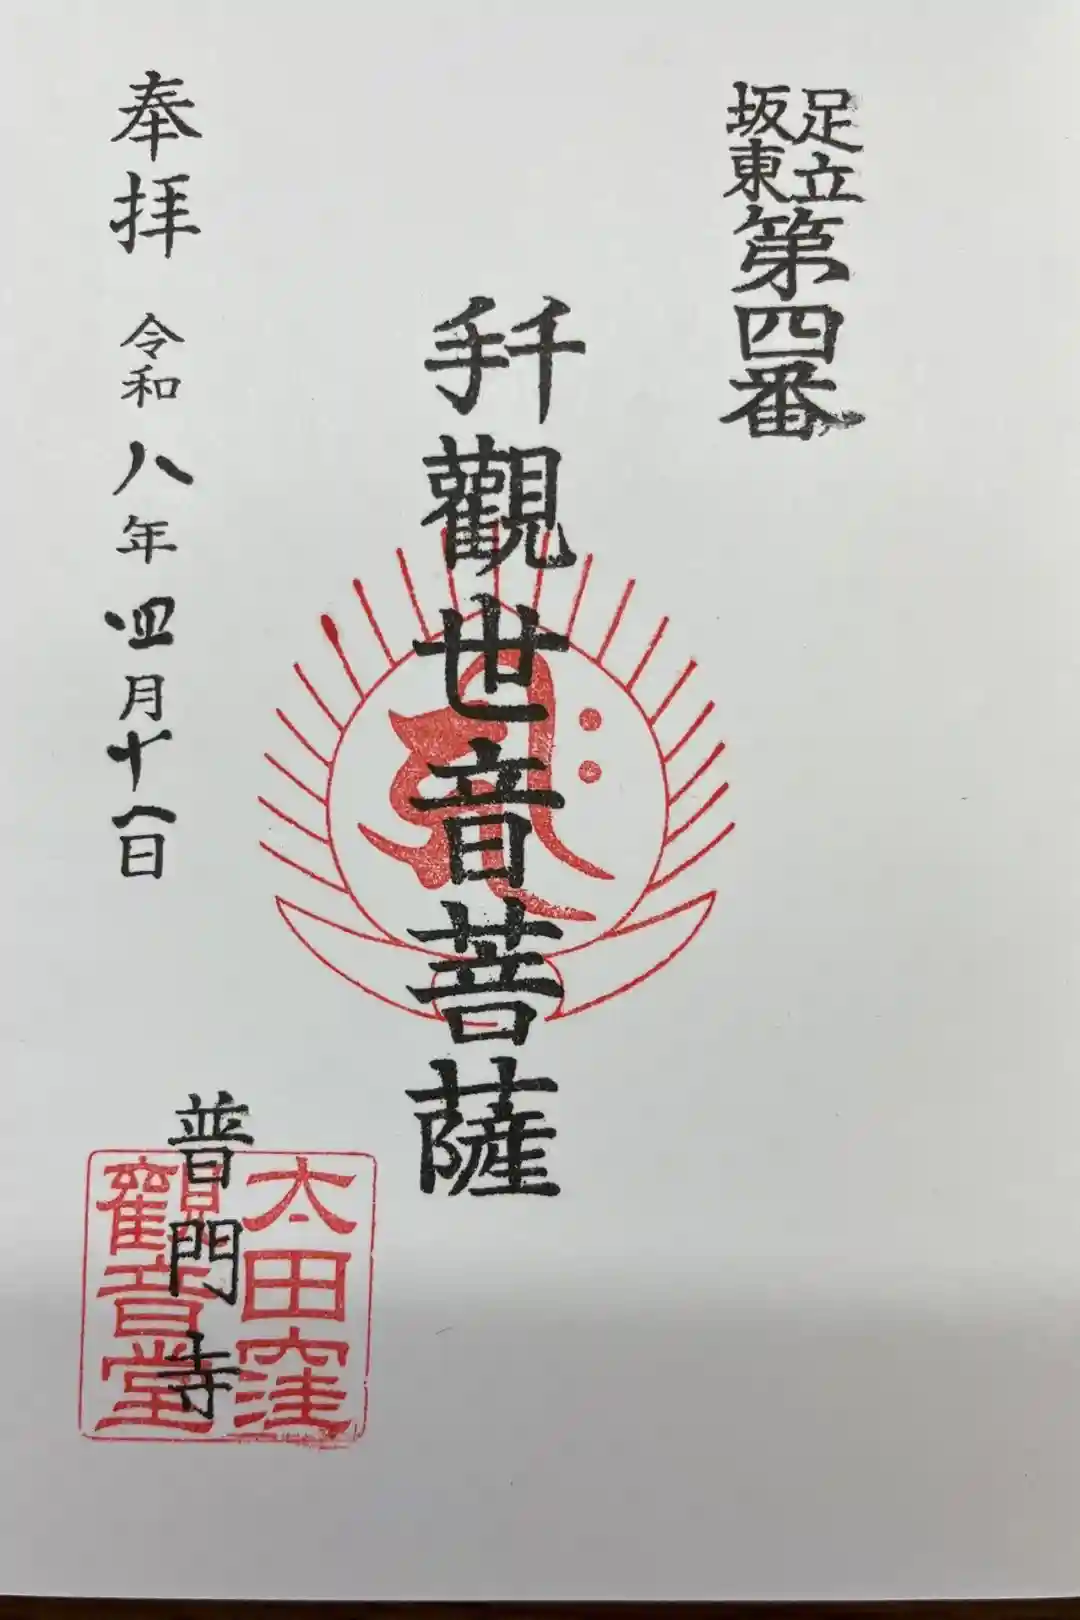 足立
坂東
第四番
千手觀世音菩薩
奉拝 令和八年四月十一日
普門寺
太田窪
觀音堂